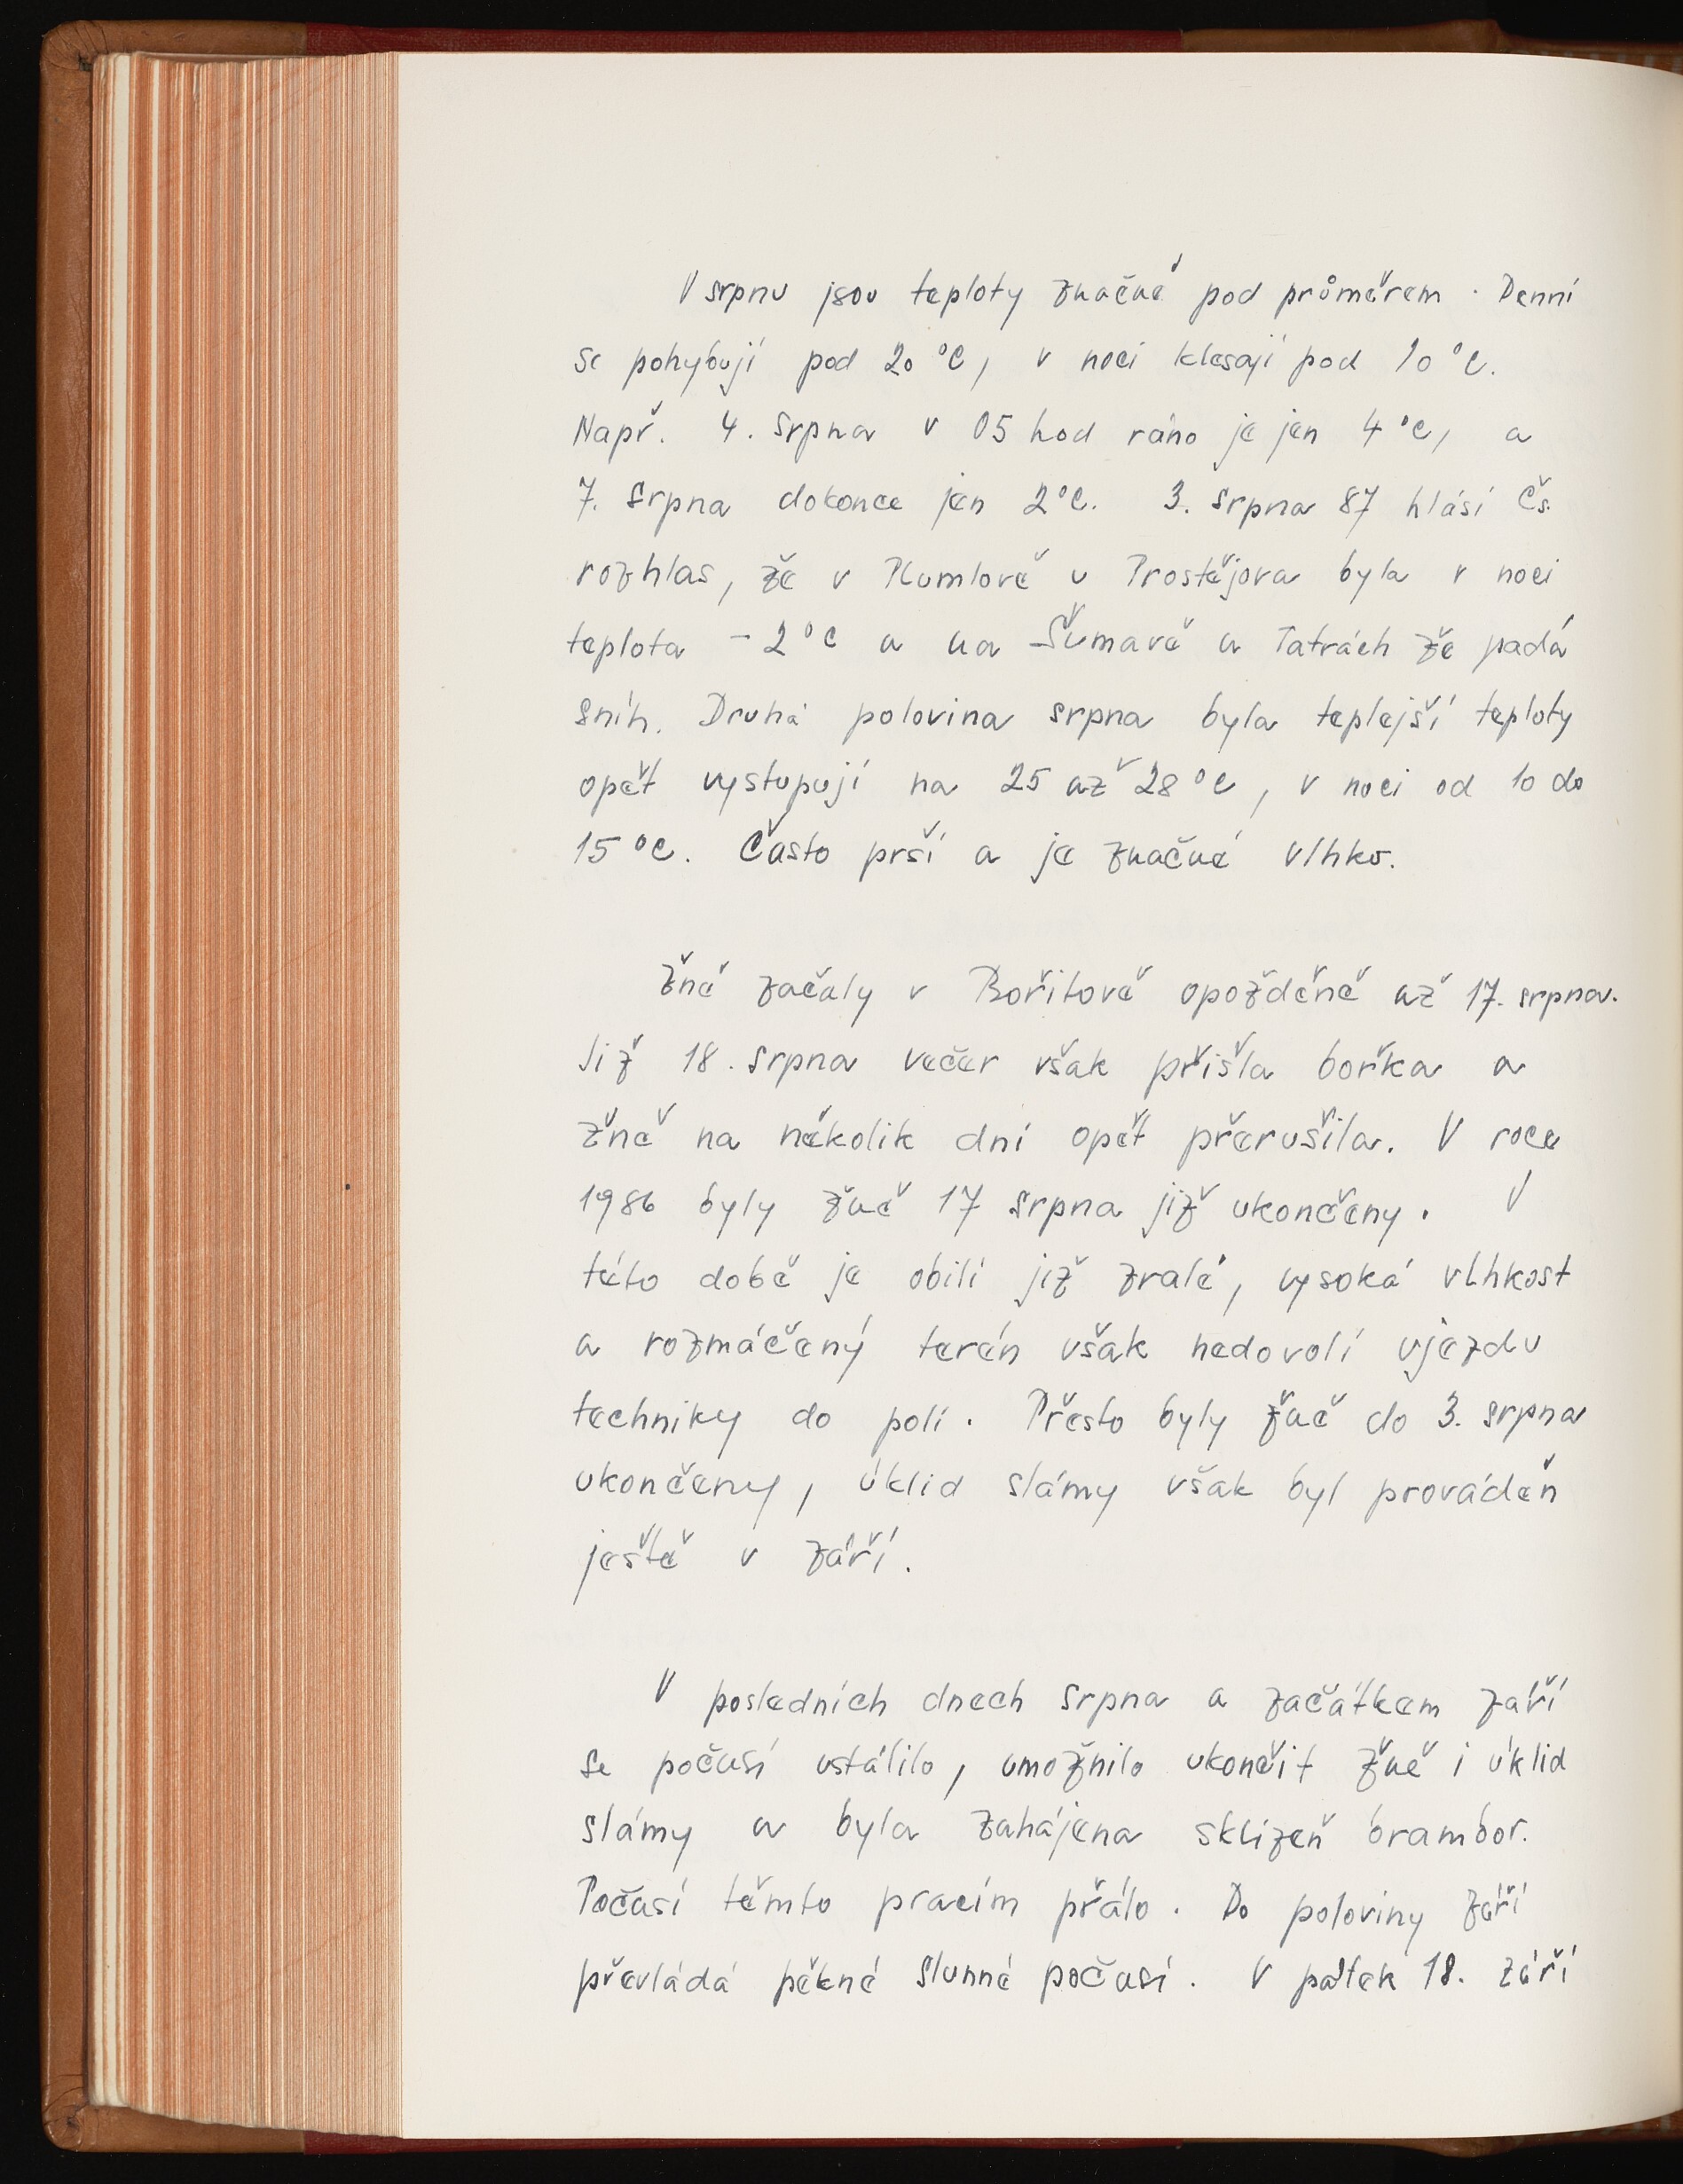 V srpnu jsou teploty značně pod průměrem. Denní
se pohybují pod 20 °C, v noci klesají pod 10 °C.
Např. 4. srpna v 05 hod ráno je jen 4 °C, a
7. srpna dokonce jen 2 °C. 3. srpna 87 hlásí Čs.
rozhlas, že v Plumlově u Prostějova byla v noci
teplota -2 °C a na Šumavě a Tatrách že padá
sníh. Druhá polovina srpna byla teplejší teploty
opět vystupují na 25 až 28 °C, v noci od 10 do
15 °C. Často prší a je značné vlhko.
Žně začaly v Bořitově opožděně až 17. srpna.
Již 18. srpna večer však přišla bouřka a
žně na několik dní opět přerušila. V roce
1986 byly žně 17 srpna již ukončeny. V
této době je obilí již zralé, vysoká vlhkost
a rozmáčený terén však nedovolí vjezdu
techniky do polí. Přesto byly žně do 3. srpna
ukončeny, úklid slámy však byl prováděn
ještě v září.
V posledních dnech srpna a začátkem září
se počasí ustálilo, umožnilo ukončit žně i úklid
slámy a byla zahájena sklizeň brambor.
Počasí těmto pracím přálo. Do poloviny září
převládá pěkné slunné počasí. V pátek 18. září